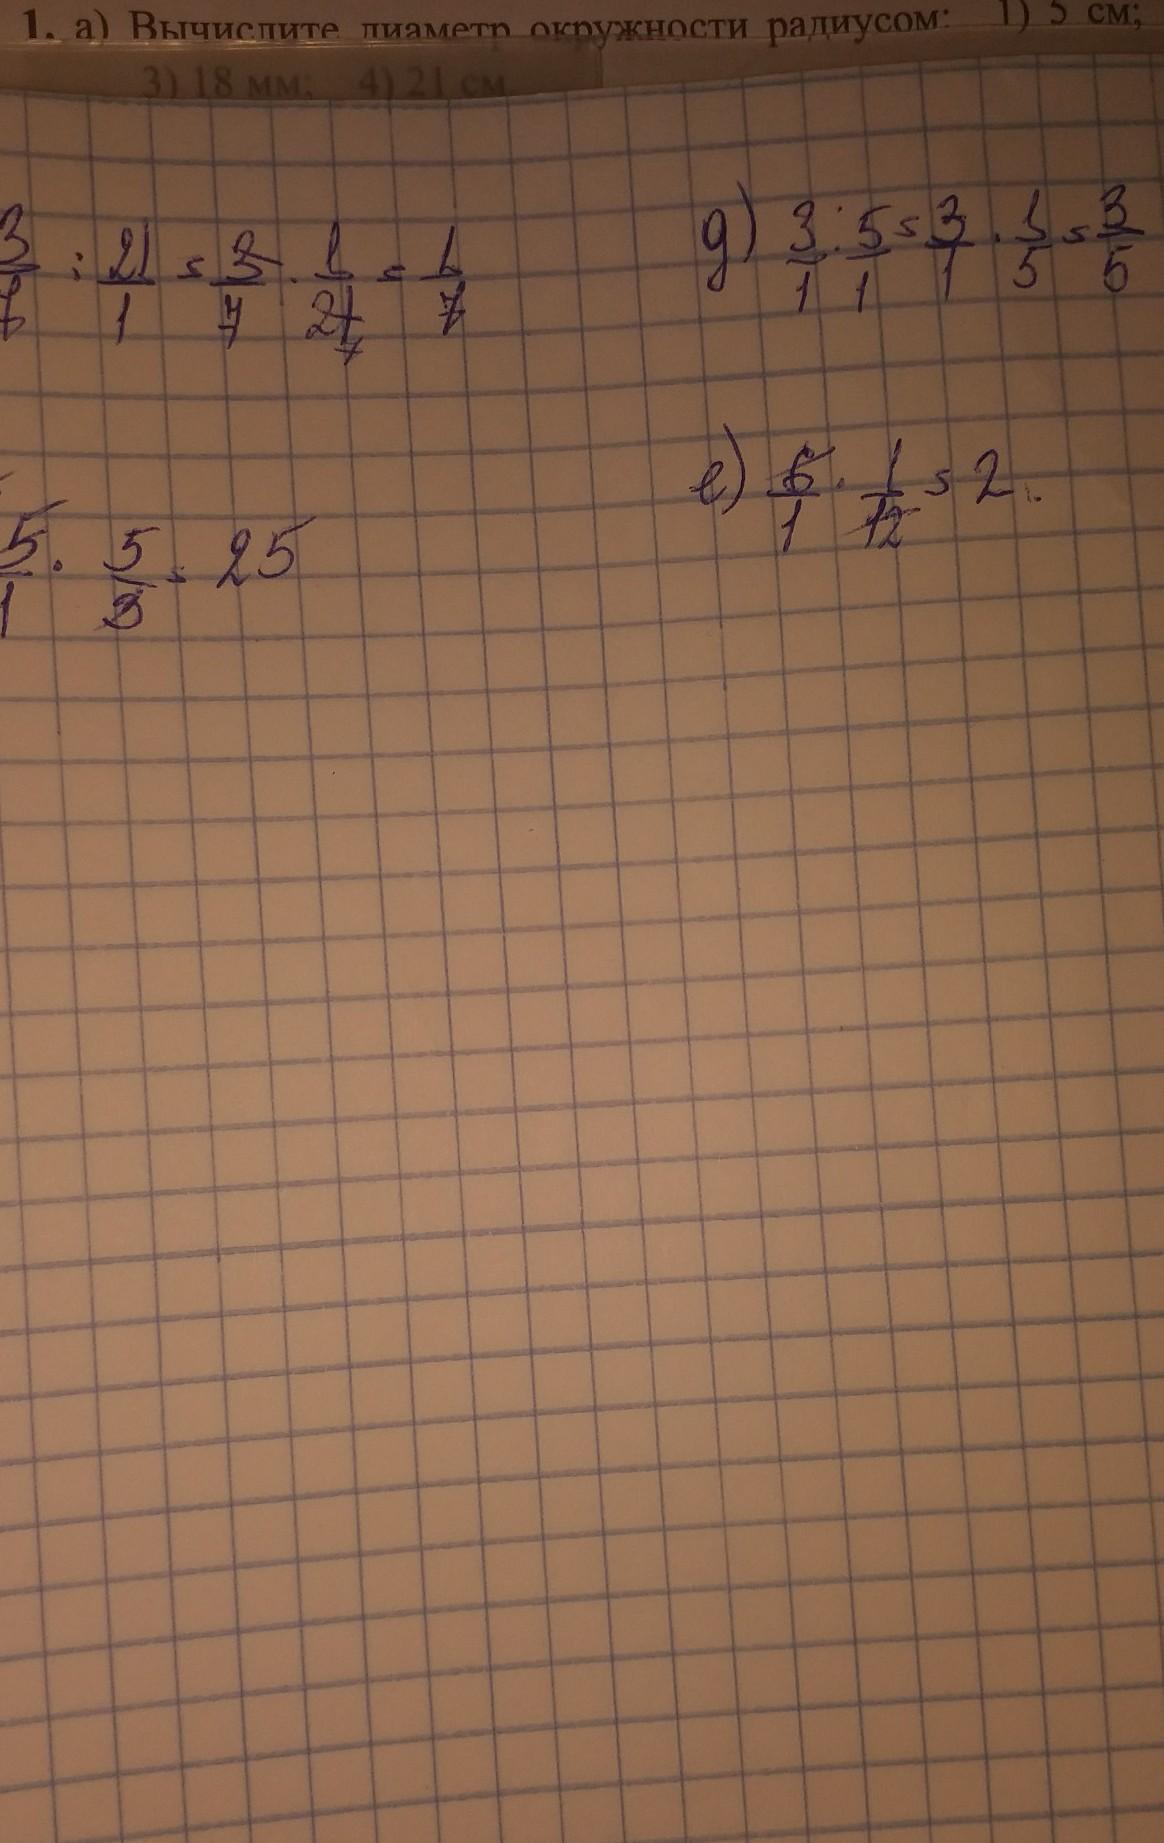 1. а) Вычислите диаметр окружности радиусом: 1) 5 см;
3) 18 мм; 4) 21 см
3/7 : 21/1 = 3/7 · 1/21 7 = 1/7
д) 3/1 : 5/1 = 3/1 · 1/5 = 3/5
е) 6/1 · 1/12 = 2.
5/1 · 5/3 = 25